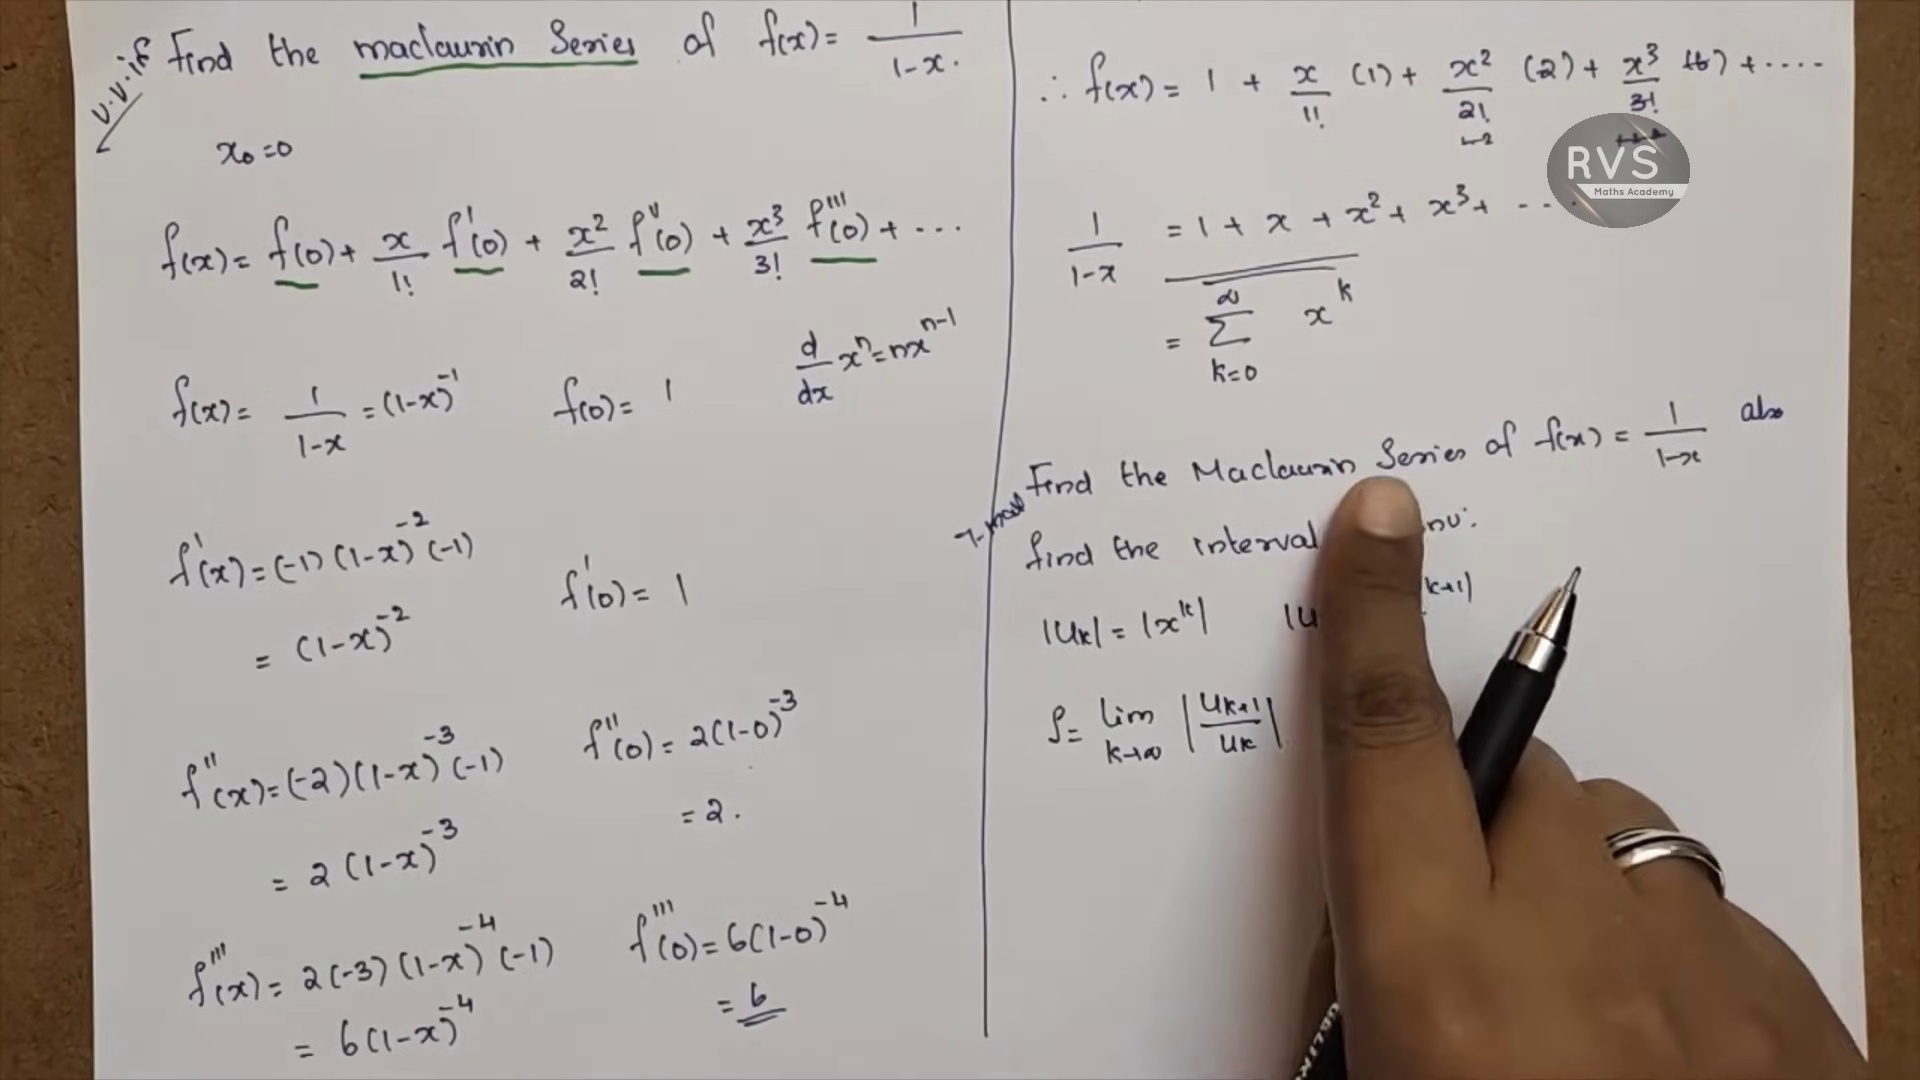 V.V.if Find the maclaurin Series of f(x) = 1/(1-x).
x₀=0
f(x) = f(0) + x/1! f'(0) + x²/2! f''(0) + x³/3! f'''(0) + ...
d/dx xⁿ = nxⁿ⁻¹
f(x) = 1/(1-x) = (1-x)⁻¹ f(0) = 1
f'(x) = (-1)(1-x)⁻²(-1)
= (1-x)⁻² f'(0) = 1
f''(x) = (-2)(1-x)⁻³(-1) f''(0) = 2(1-0)⁻³
= 2(1-x)⁻³ = 2.
f'''(x) = 2(-3)(1-x)⁻⁴(-1) f'''(0) = 6(1-0)⁻⁴
= 6(1-x)⁻⁴ = 6
∴ f(x) = 1 + x/1! (1) + x²/2! (2) + x³/3! (6) + ....
RVS
Maths Academy
1/(1-x) = 1 + x + x² + x³ + ....
= ∑ k=0 ∞ xᵏ
Find the Maclaurin Series of f(x) = 1/(1-x) also
find the interval
|uₖ| = |xᵏ| |u k+1|
ρ = lim k→∞ |uₖ₊₁/uₖ|